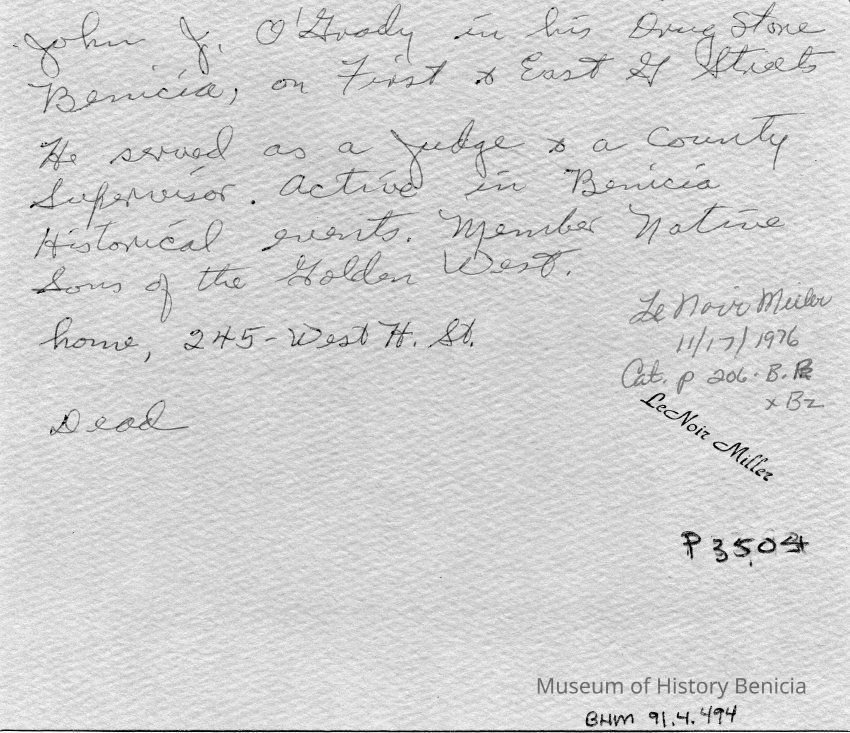 John J. O'Grady in his Drug Store
Benicia, on First & East G Streets
He served as a Judge & a County
Supervisor. Active in Benicia
Historical events. Member Native
Sons of the Golden West.
home, 245-West H. St.
Dead
LeNoir Miller
11/17/1976
Cat. p 206. B.
x B2
LeNoir Miller
P 3504
Museum of History Benicia
BHM 91.4.494